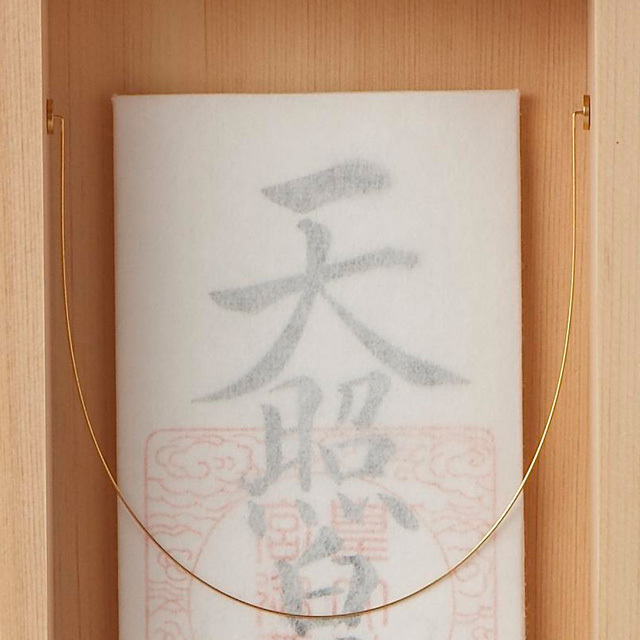 天照皇